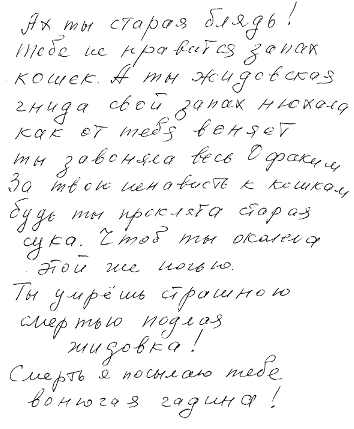 Ах ты старая блядь!
Тебе не нравится запах
кошек. А ты жидовская
гнида свой запах нюхала
как от тебя воняет
ты завоняла весь Офаким
За твою ненависть к кошкам
будь ты проклята старая
сука. Чтоб ты околела
этой же ночью.
Ты умрёшь страшною
смертью подлая
жидовка!
Смерть я посылаю тебе
вонючая гадина!